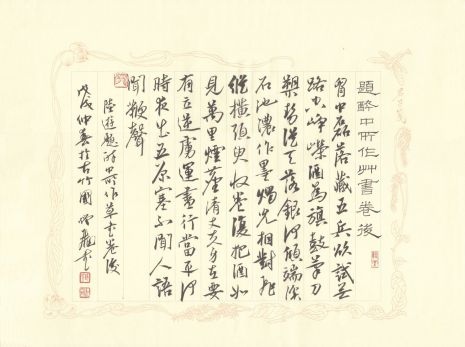 題醉中所作艸書卷後
胷中磊落藏五兵欲試無
路空崢嶸酒為旗鼓筆刀
槊勢從天落銀河傾端溪
石池濃作墨燭光相對飛
縱橫須臾收卷復把酒如
見萬里煙塵清丈夫身在要
有立逆虜運盡行當平何
時夜出五原塞不聞人語
聞鞭聲
陸游題醉中所作草書卷後
戊戌仲春於古竹園